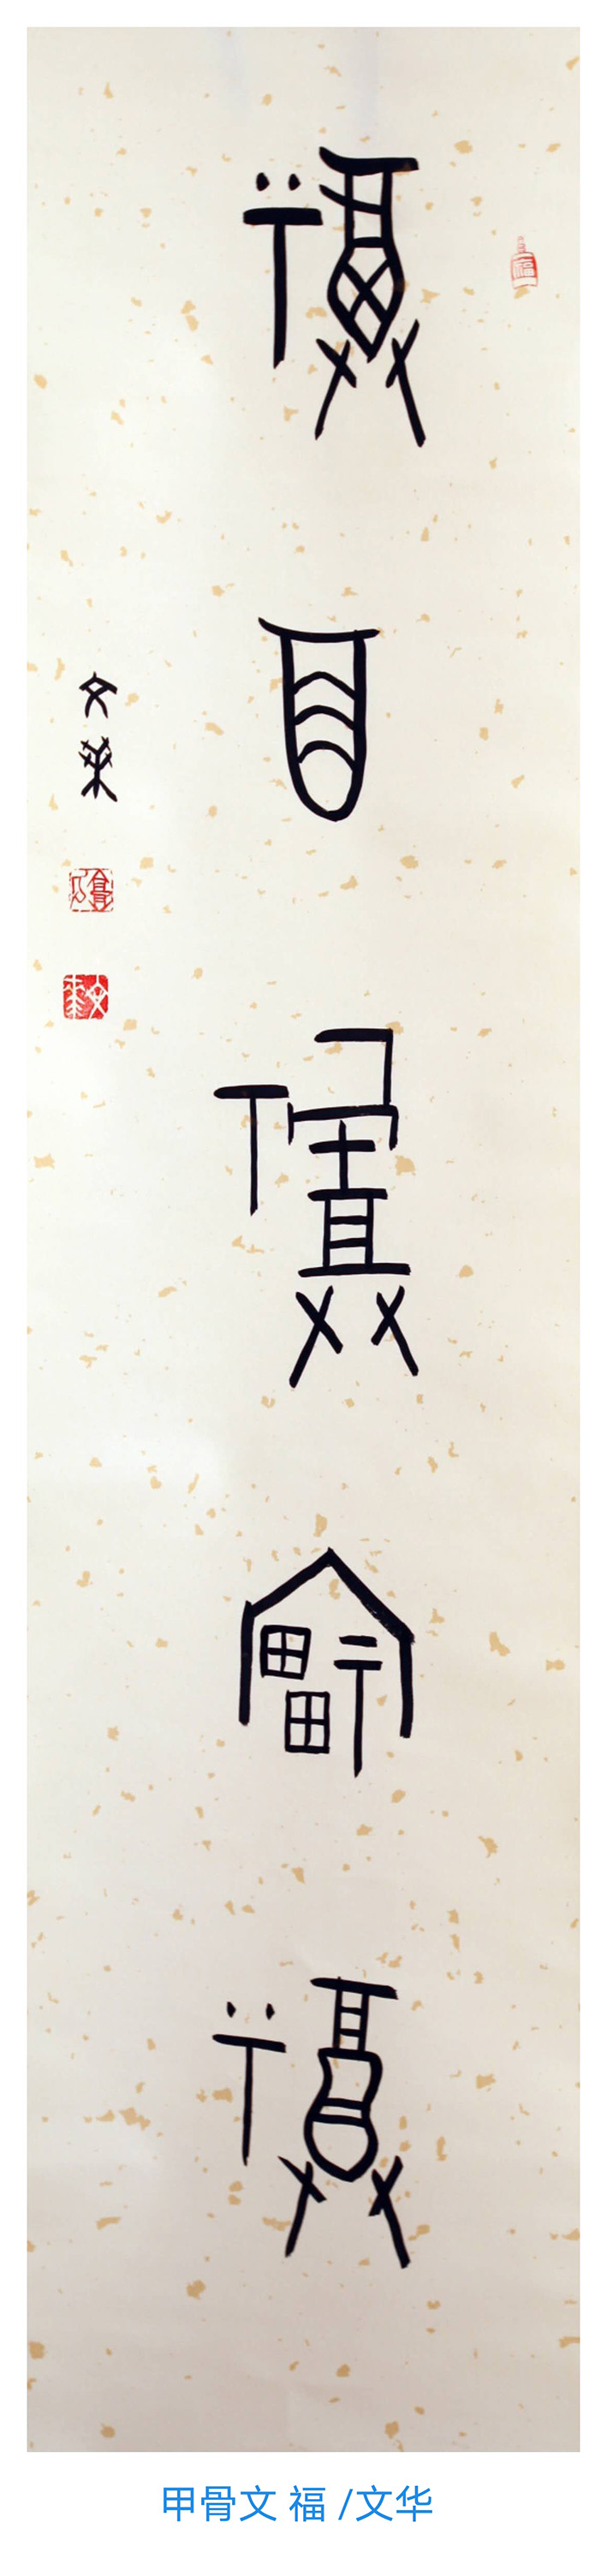 福
福
福
福
福
文华
甲骨文 福 /文华